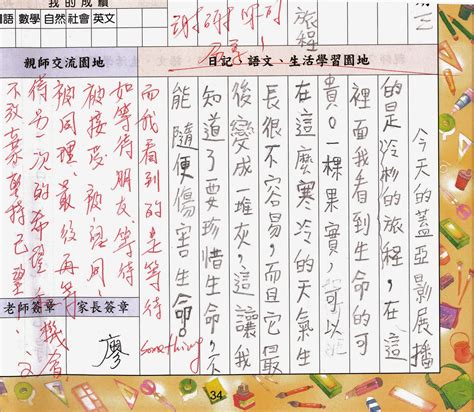 我的成績
語 數學 自然 社會 英文
謝謝你的
分享!
旅程
三
親師交流園地
日記、語文、生活學習園地
今天的蓋亞影展播
的是冷杉的旅程,在這
裡面我看到生命的可
貴。一棵果實,可以
在這麼寒冷的天氣生
長很不容易,而且它
後變成一堆灰,這讓我
知道了要珍惜生命,不
能隨便傷害生命。
而我看到的是等待
something
如等待朋友、等待
被接受、被認同
被同理、最後再等
待另一次的希望、機會
不放棄
老師簽章
家長簽章
廖
34